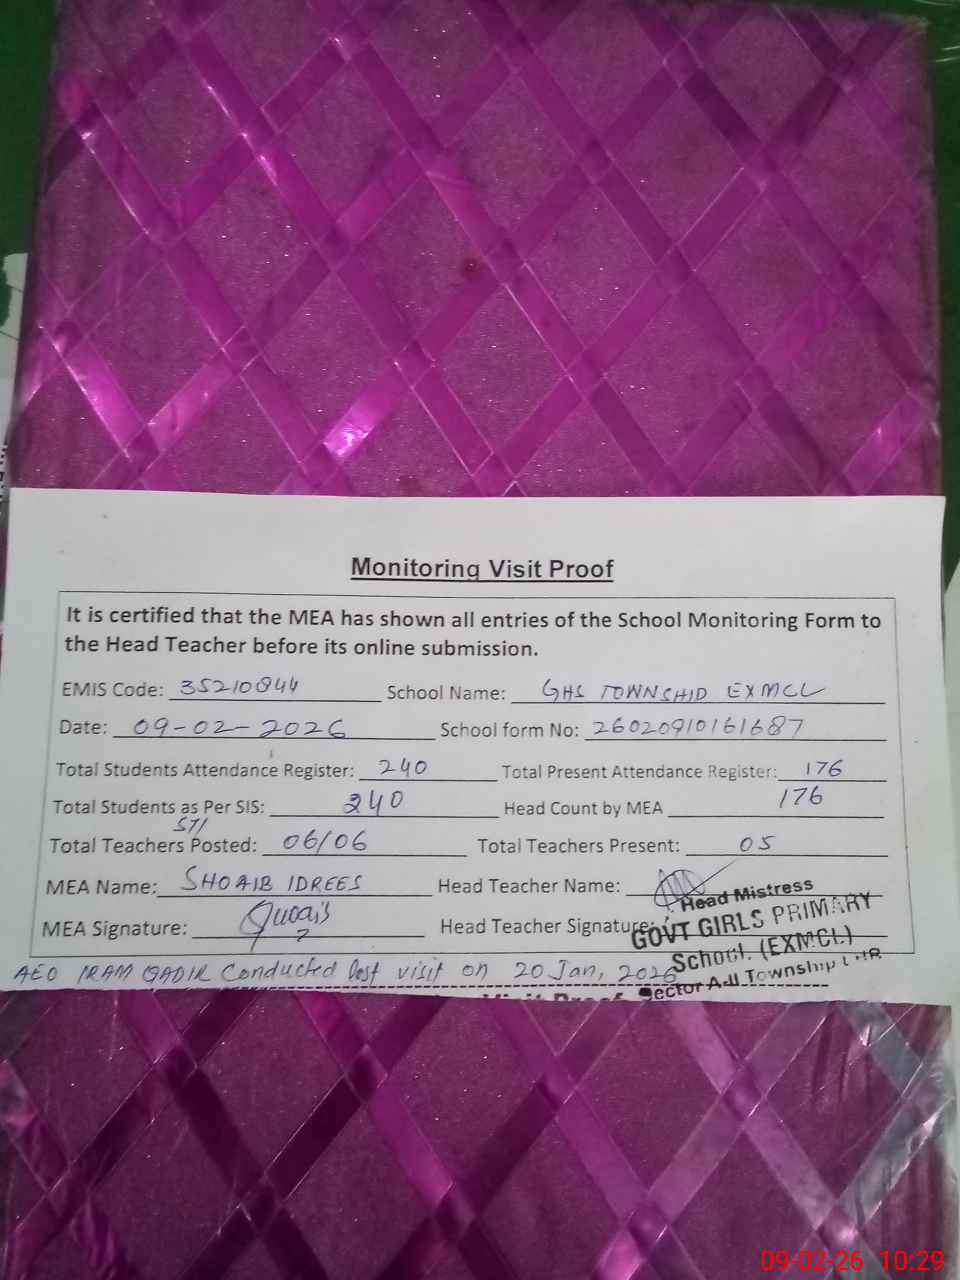 Monitoring Visit Proof
It is certified that the MEA has shown all entries of the School Monitoring Form to
the Head Teacher before its online submission.
EMIS Code: 35210844 School Name: GHS TOWNSHIP EXMCL
Date: 09-02-2026 School form No: 26020910161687
Total Students Attendance Register: 240 Total Present Attendance Register: 176
Total Students as Per SIS: 240 Head Count by MEA 176
STI
Total Teachers Posted: 06/06 Total Teachers Present: 05
MEA Name: SHOAIB IDREES Head Teacher Name:
MEA Signature: Head Teacher Signature:
Head Mistress
GOVT GIRLS PRIMARY
School. (EXMCL)
Sector A-II Township LHR
AEO IRAM QADIR Conducted last visit on 20 Jan, 2026
Visit Proof
09-02-26 10:29